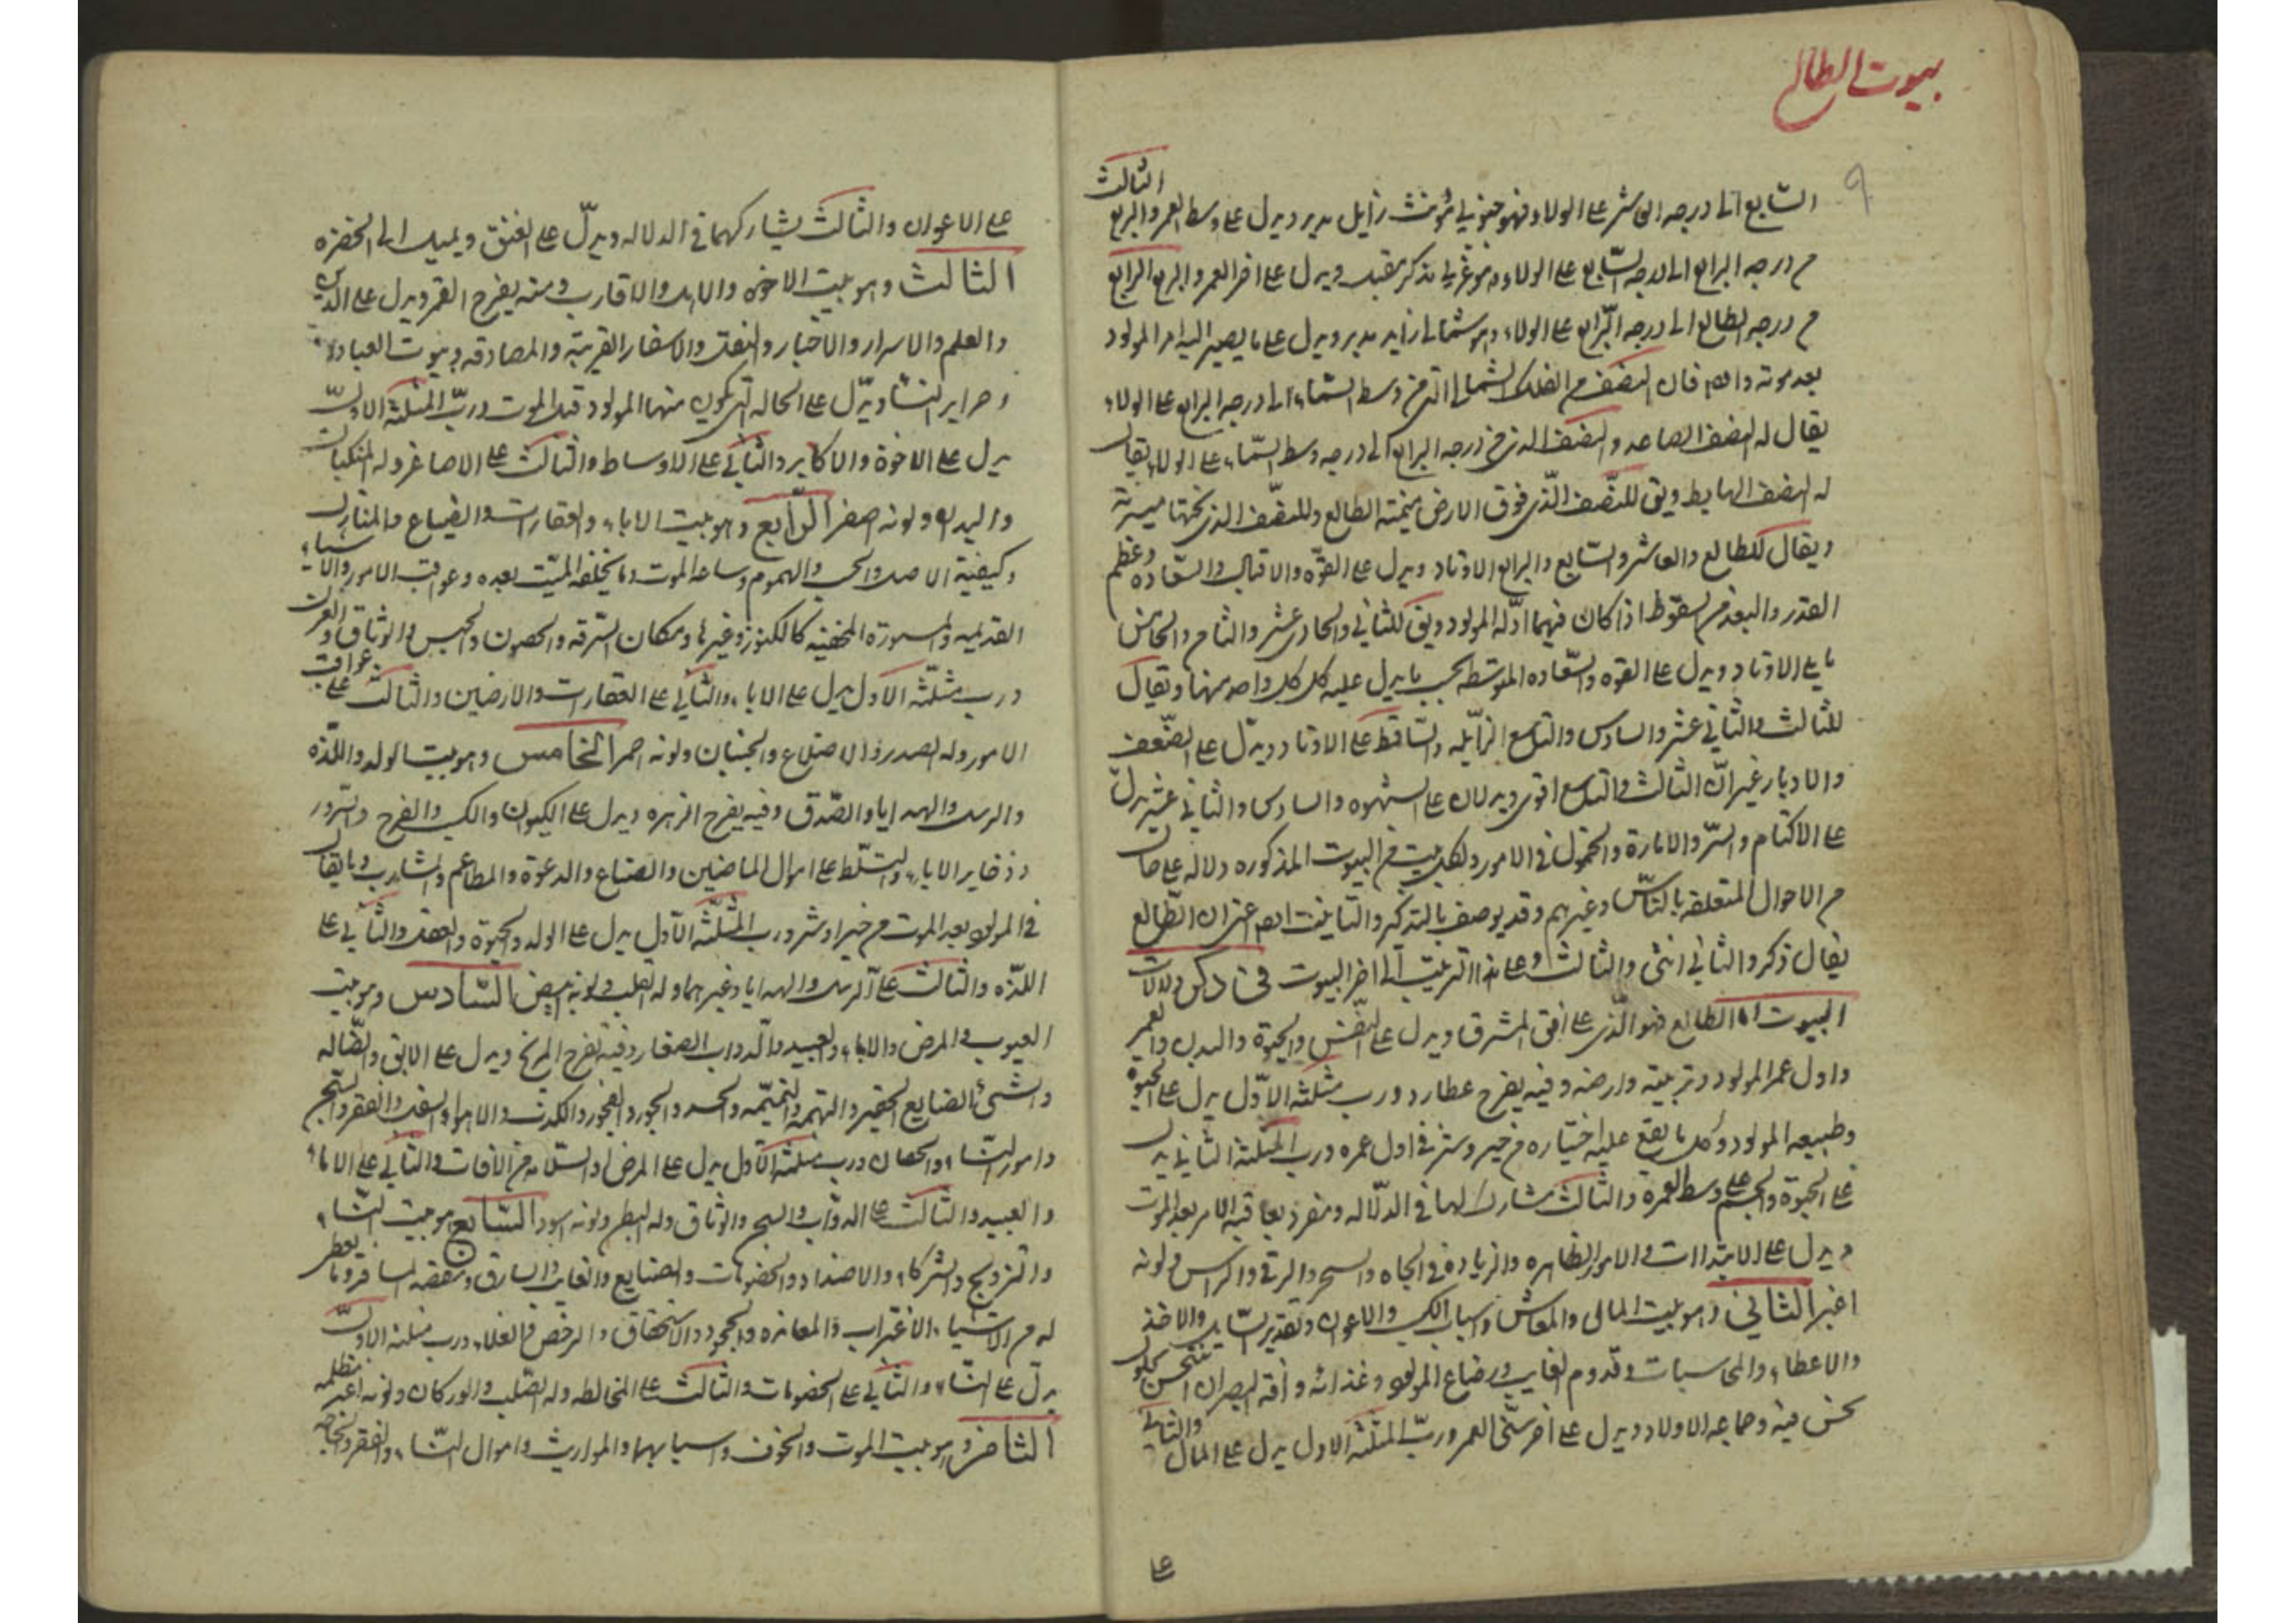 بيوت الطالع
٩
السابع الى درجه العاشر على الولاء فهو جنوبي مؤنث زايل مدبر ويدل على وسط العمر والربع الثالث
من درجه الرابع الى درجه السابع على الولاء وهو غربي مذكر مقبل ويدل على اخر العمر والربع الرابع
من درجه الطالع الى درجه الرابع على الولاء وهو شمالي زايد مدبر ويدل على ما يصير اليه امر المولود
بعد موته فان النصف من الفلك الشمالى الذى من وسط السماء الى درجه الرابع على الولاء
يقال له النصف الصاعد والنصف الذى من درجه الرابع الى درجه وسط السماء على الولاء يقال
له النصف الهابط ويق للنصف الذى فوق الارض يمنة الطالع وللنصف الذى تحتها ميسرته
ويقال للطالع والعاشر والسابع والرابع الاوتاد ويدل على القوّه والاقبال والسعاده وعظم
القدر والبعد من السقوط اذا كان فيهما ادلّه المولود ويق للثاني والحادى عشر والثامن والخامس
مايلى الاوتاد ويدل على القوه والسعاده المتوسطه بحسب ما يدل عليه كل واحد منها ويقال
للثالث والثاني عشر والسادس والتاسع الزايله والساقط على الاوتاد ويدل على الضعف
والادبار غير انّ الثالث والتاسع اقوى ويدلان على الشهوه والسادس والثاني عشر يدل
على الاكتام والسرّ والامارة والخمول فى الامور ولكل بيت من البيوت المذكوره دلاله على حال
من الاحوال المتعلقه بالناس وغيرهم وقد يوصف بالتذكير والتانيث اعنى ان الطالع
يقال ذكر والثاني انثى والثالث وعلى هذا الترتيب الى اخر البيوت فى ذكر دلالات
البيوت اما الطالع فهو الّذى على افق المشرق ويدل على النفس والحيوة والبدن والعمر
واول عمر المولود وتربيته وارضه وفيه يفرح عطارد ورب مثلثته الاوّل يدل على الحيوة
وطبيعه المولود وكل ما يقع عليه اختياره من خير وشر فى اول عمره ورب المثلثة الثاني يدل
على الحيوة والجسم على وسط العمر والثالث مشارك لهما فى الدّلاله ومنفرد بعاقبة الامر بعد الموت
ويدل على الابتداات والامور الظاهره والزياده فى الجاه والسحر والرقى والراس ولونه
اغبر الثاني وهو بيت المال والمعاش واسباب الكسب والاعوان وتقدير والاخذ
والاعطاء والمحاسبات وقدوم الغايب ورضاع المولود وغذائه وافة البصر ان
نحس فيه وجماعه الاولاد ويدل على اخر سنى العمر وربّ المثلثه الاول يدل على المال والثاني
على
على الاعوان والثالث يشاركهما فى الدلاله ويدلّ على العنق ويميل الى الخضره
الثالث وهو بيت الاخوه والاهل والاقارب وفيه يفرح القمر ويدل على الدين
والعلم والاسرار والاخبار والنقل والاسفار القريبة والمصادقه وبيوت العباده
ويدّل على الحاله التى يكون منها المولود قبل الموت وربّ المثلثه الاول
يدل على الاخوة والاكابر والثاني على الاوساط والثالث على الاصاغر وله المنكبان
واليدان ولونه اصفر الرّابع وهو بيت الاباء والعقارات والضياع والمنازل
وكيفية الاصل والحبس والهموم وساعه الموت وما يخلفه الميّت بعده وعواقب الامور والاشياء
القديمه والمستورة المخفيه كالكنوز وغيرها ومكان السّرقه والحصون والحبس والوثاق
ورب مثلّثته الاول يدل على الاباء والثاني على العقارات والارضين والثالث على عواقب
الامور وله الصدر والاضلاع والجنبان ولونه احمر الخامس وهو بيت الولد واللّذه
والرسل والهدايا والصّدق وفيه يفرح الزهره ويدل على والكسب والفرح والسّرور
وذخاير الاباء والتسلّط على اموال الماضين والضياع والدعوة والمطاعم والمشارب وما يقال
فى المولود بعد الموت من خير او شر ورب المثلّثه الاوّل يدل على الولد والحيوة والعقد والثاني على
اللذّه والثالث على الرسل والهدايا وغيرهما وله القلب ولونه ابيض السّادس وهو بيت
العيوب والمرض والاباء والعبيد والّدواب الصغار وفيه يفرح المريخ ويدل على الابق والضّاله
والشئ الضايع الحقير والتهمه والنميمه والحسد والجور والفجور والكدب والفقر والسّجن
وامور النساء والخصيان ورب مثلثته الاوّل يدل على المرض او السلامه من الافات والثاني على الاماء
والعبيد والثالث على الدوّاب والسجن والوثاق وله البطن ولونه اسود السّابع هو بيت النساء
والتزويج والشركاء والاضداد والخصومات والضايع والغايب والسارق ومقصد المسافر وما يعطى
له من الاشياء الاغتراب والمعانده والجحود والاستحقاق والرخص والغلاء ورب مثلثته الاول
يدل على النساء والثاني على الخصومات والثالث على المخالطه وله الصّلب والوركان ولونه اغبر مظلمه
الثامن وهو بيت الموت والخوف واسبابهما والمواريث واموال النّساء والفقر والحاجه